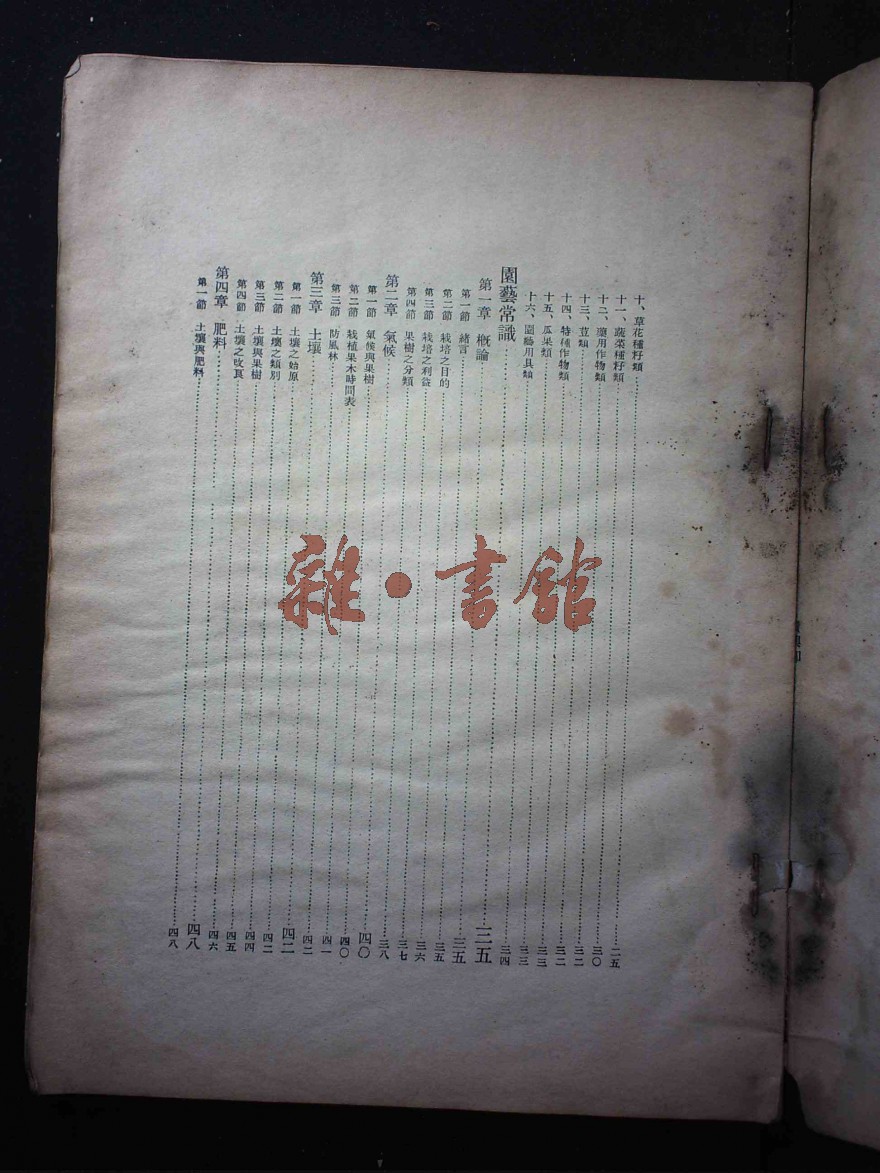 十、草花種籽類……二五
十一、蔬菜種籽類……三〇
十二、藥用作物類……三二
十三、荳類……三二
十四、特種作物類……三三
十五、瓜果類……三三
十六、園藝用具類……三四
園藝常識……三五
第一章 概論……三五
第一節 緒言……三五
第二節 栽培之目的……三六
第三節 栽培之利益……三七
第四節 果樹之分類……三八
第二章 氣候……四〇
第一節 氣候與果樹……四〇
第二節 栽植果木時間表……四一
第三節 防風林……四二
第三章 土壤……四二
第一節 土壤之始原……四二
第二節 土壤之類別……四四
第三節 土壤與果樹……四五
第四節 土壤之改良……四六
第四章 肥料……四八
第一節 土壤與肥料……四八
雜·書館